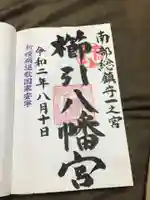 南部総鎮守一之宮
櫛引八幡宮
令和二年八月十日